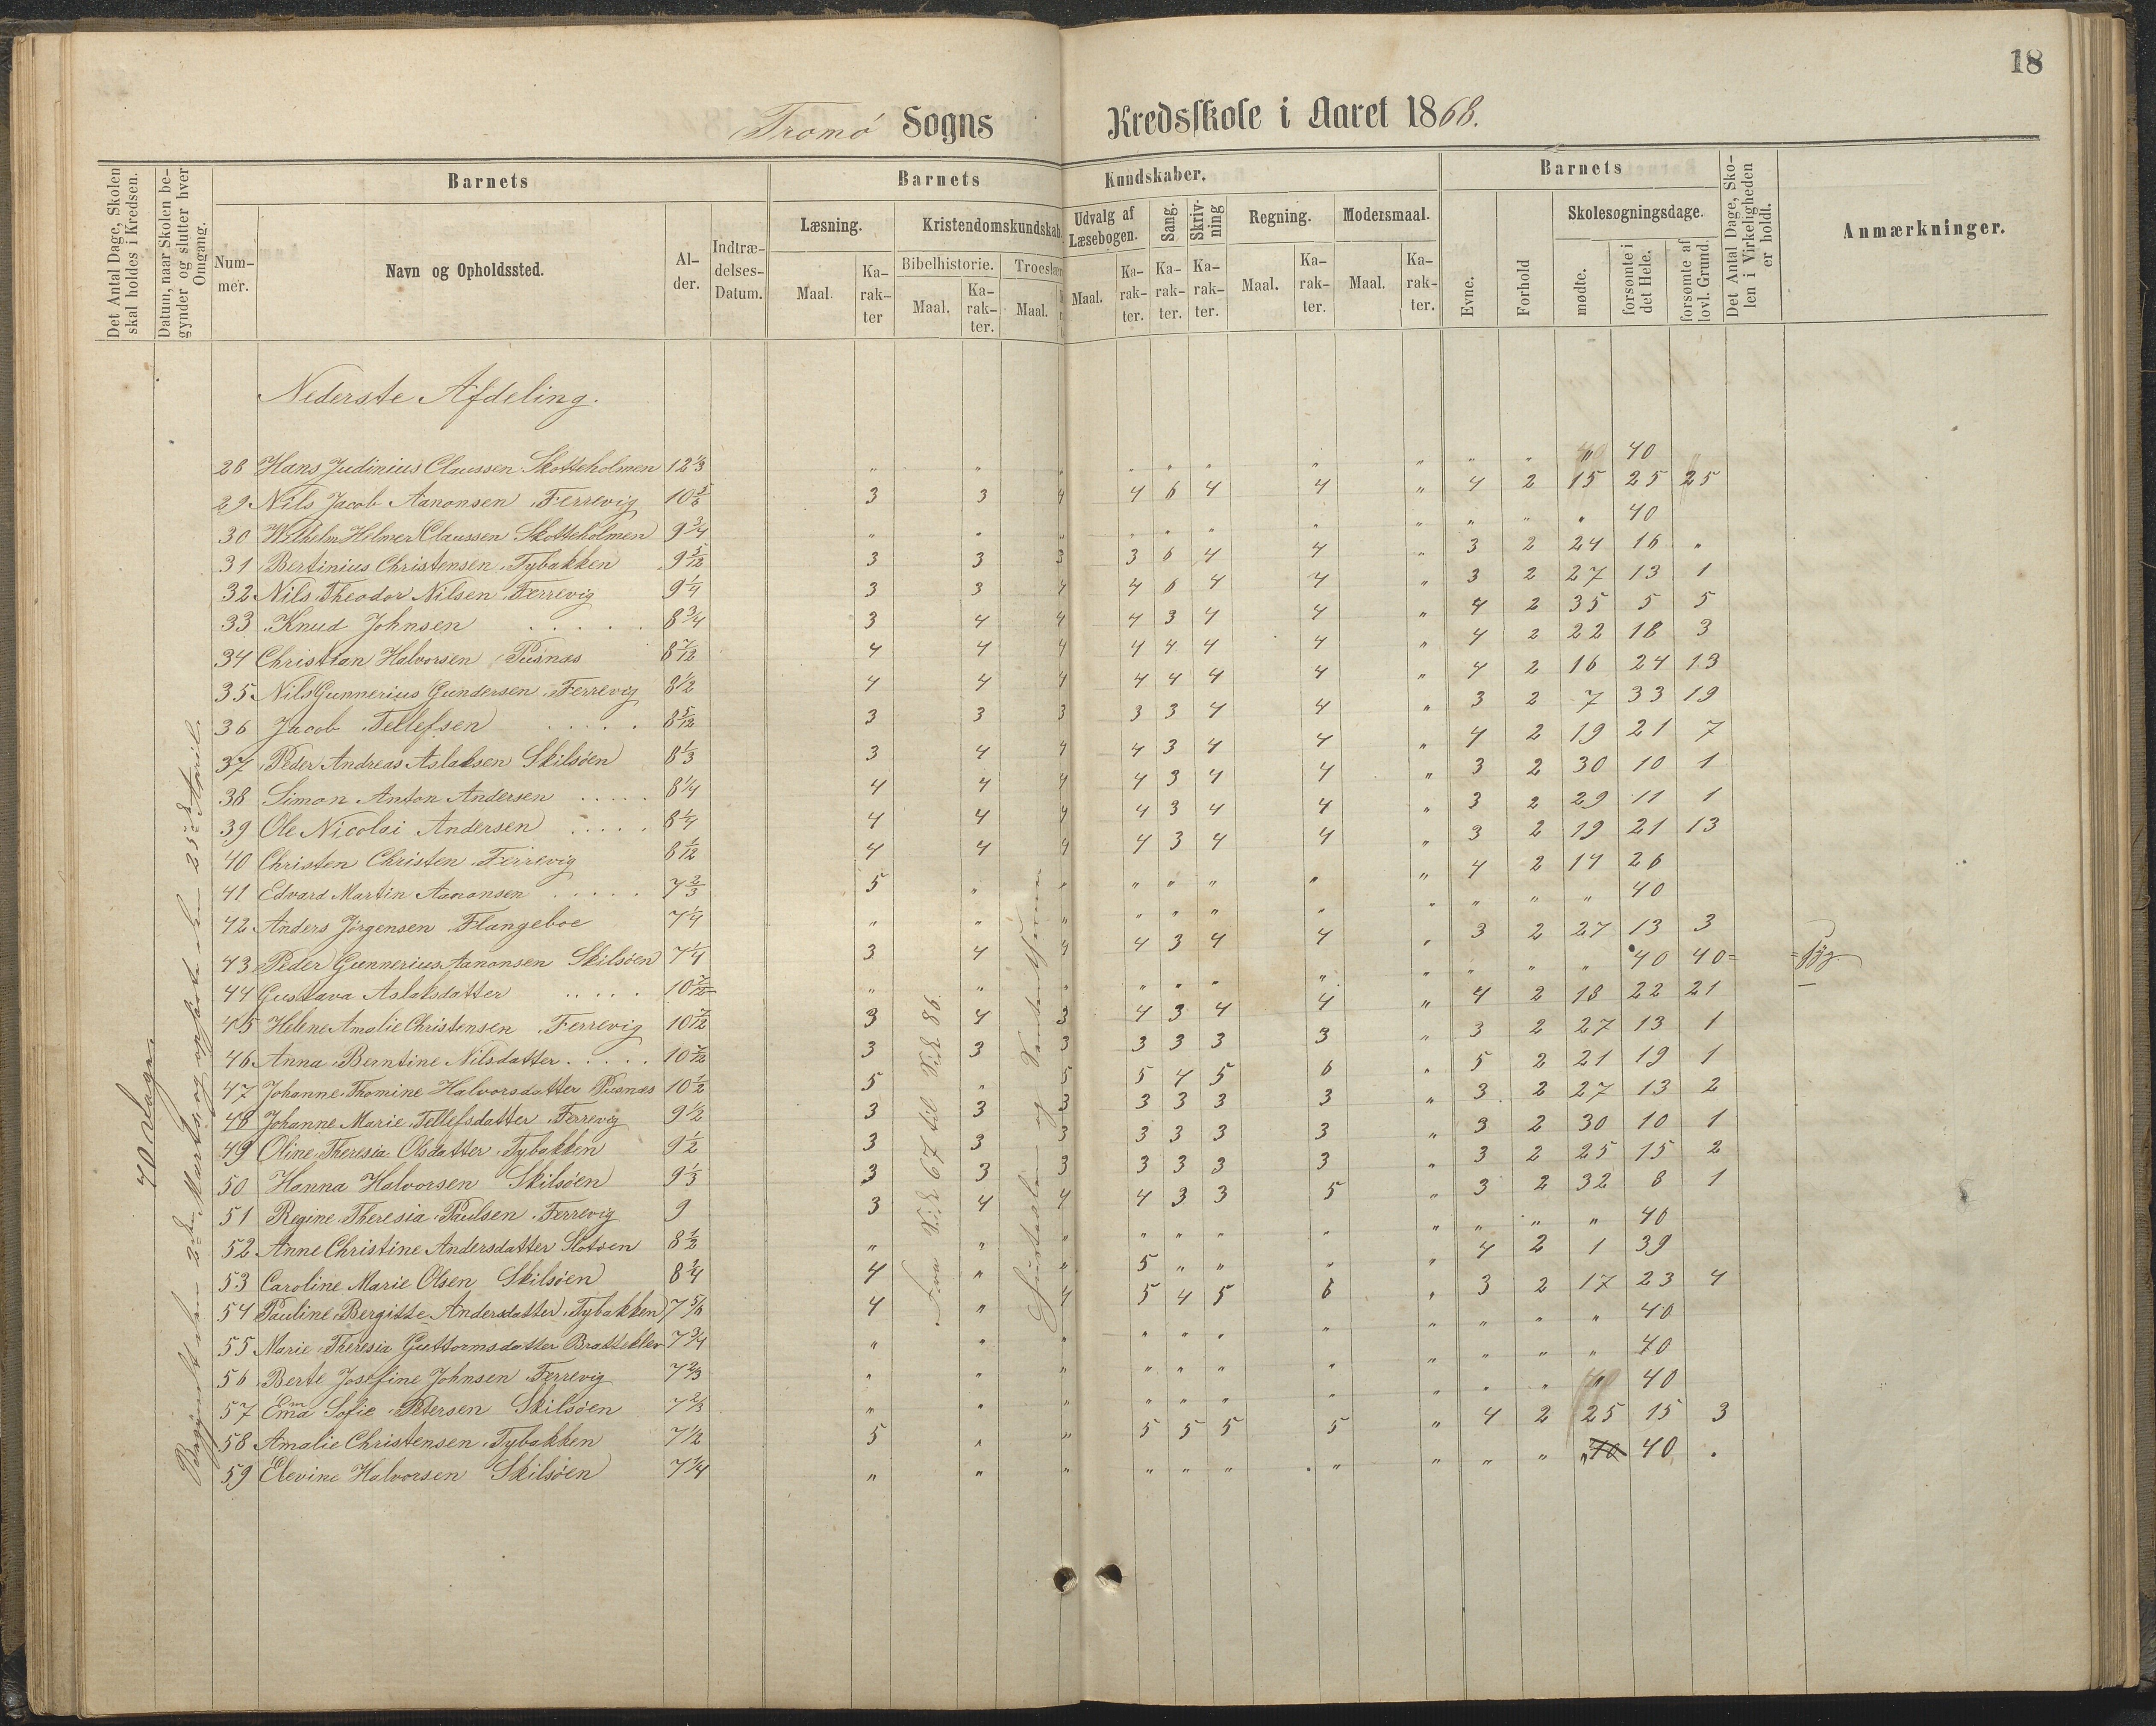 18
Tromø Sogns Kredsskole i Aaret 1868.
Det Antal Dage, Skolen skal holdes i Kredsen.
Datum, naar Skolen begynder og slutter hver Omgang.
Barnets
Nummer.
Navn og Opholdssted.
Alder.
Indtrædelses-Datum.
Barnets Kundskaber.
Læsning.
Maal.
Karakter
Kristendomskundskab.
Bibelhistorie.
Maal.
Karakter.
Troeslær
Maal.
Udvalg af Læsebogen.
Maal.
Karakter.
Sang.
Karakter.
Skrivning
Karakter.
Regning.
Maal.
Karakter.
Modersmaal.
Maal.
Karakter.
Barnets
Evne.
Forhold
Skolesøgningsdage.
mødte.
forsømte i det Hele.
forsømte af lovl. Grund.
Det Antal Dage, Skolen i Virkeligheden er holdt.
Anmærkninger.
40 Dage.
Begyndt den 2den Marts og ophørte den 25de April.
Fra Sid. 67 til Sid. 86.
Nederste Afdeling.
28 Hans Judinius Claussen Skotteholmen 12 1/3 " " " " " " " " " " " 40
29 Nils Jacob Aanonsen Færrevig 10 5/6 3 3 4 4 6 4 4 " 4 2 15 25 25
30 Wilhelm Hilmer Claussen Skotteholmen 9 3/4 " " " " " " " " " " " 40
31 Bertinius Christensen Tybakken 9 5/12 3 3 3 3 6 4 4 " 3 2 24 16 "
32 Nils Theodor Nilsen Færrevig 9 1/4 3 3 4 4 6 4 4 " 3 2 27 13 1
33 Knud Johnsen . . . . . 8 3/4 3 4 4 4 3 4 4 " 4 2 35 5 5
34 Christian Halvorsen Pusnæs 8 7/12 4 4 4 4 4 4 4 " 4 2 22 18 3
35 Nils Gunnerius Gundersen Færrevig 8 1/2 4 4 4 4 4 4 4 " 4 2 16 24 13
36 Jacob Tellefsen . . . . . 8 5/12 3 3 3 3 3 4 4 " 3 2 7 33 19
37 Peder Andreas Aslaksen Skilsøen 8 1/3 3 4 4 4 3 4 4 " 4 2 19 21 7
38 Simon Anton Andersen . . . . . 8 1/4 4 4 4 4 3 4 4 " 3 2 30 10 1
39 Ole Nicolai Andersen . . . . . 8 1/4 4 4 4 4 3 4 4 " 3 2 29 11 1
40 Christen Christen Færrevig 8 1/12 4 4 4 4 3 4 4 " 3 2 19 21 13
41 Edvard Martin Aanonsen . . . . . 7 2/3 5 " " " " " " " 4 2 14 26
42 Anders Jørgensen Flangeboe 7 1/4 " " " " " " " " " " " 40
43 Peder Gunnerius Aanonsen Skilsøen 7 1/4 3 4 4 4 3 4 4 " 3 2 27 13 3
44 Gustava Aslaksdatter . . . . . 10 7/12 " " " " " " " " " " " 40 40 = = Syg.
45 Helene Amalie Christensen Færrevig 10 7/12 3 4 3 4 3 4 4 " 4 2 18 22 21
46 Anna Berntine Nilsdatter . . . . . 10 7/12 3 3 3 3 3 3 3 " 3 2 27 13 1
47 Johanne Thomine Halvorsdatter Pusnæs 10 1/2 5 " 5 5 4 5 6 " 5 2 21 19 1
48 Johanne Marie Tellefsdatter Færrevig 9 1/2 3 3 3 3 3 3 3 " 3 2 27 13 2
49 Oline Theresia Olsdatter Tybakken 9 1/2 3 3 3 3 3 3 3 " 3 2 30 10 1
50 Hanna Halvorsen Skilsøen 9 1/3 3 3 3 3 3 3 3 " 3 2 25 15 2
51 Regine Theresia Paulsen Færrevig 9 3 4 4 4 3 3 5 " 3 2 32 8 1
52 Anne Christine Andersdatter Slotøen 8 1/2 " " " " " " " " " " " 40
53 Caroline Marie Olsen Skilsøen 8 1/4 4 " " 5 " " " " 4 2 1 39
54 Pauline Bergitte Andersdatter Tybakken 7 5/6 4 " 4 5 4 5 6 " 3 2 17 23 4
55 Marie Theresia Guttormsdatter Bratteklev 7 3/4 " " " " " " " " " " " 40
56 Berte Josefine Johnsen Færrevig 7 2/3 " " " " " " " " " " " 40
57 Ema Sofie Petersen Skilsøen 7 2/3 " " " " " " " " " " " 40
58 Amalie Christensen Tybakken 7 1/2 5 " " 5 5 5 5 " 4 2 25 15 3
59 Elevine Halvorsen Skilsøen 7 1/4 " " " " " " " " " " " 40 40 .